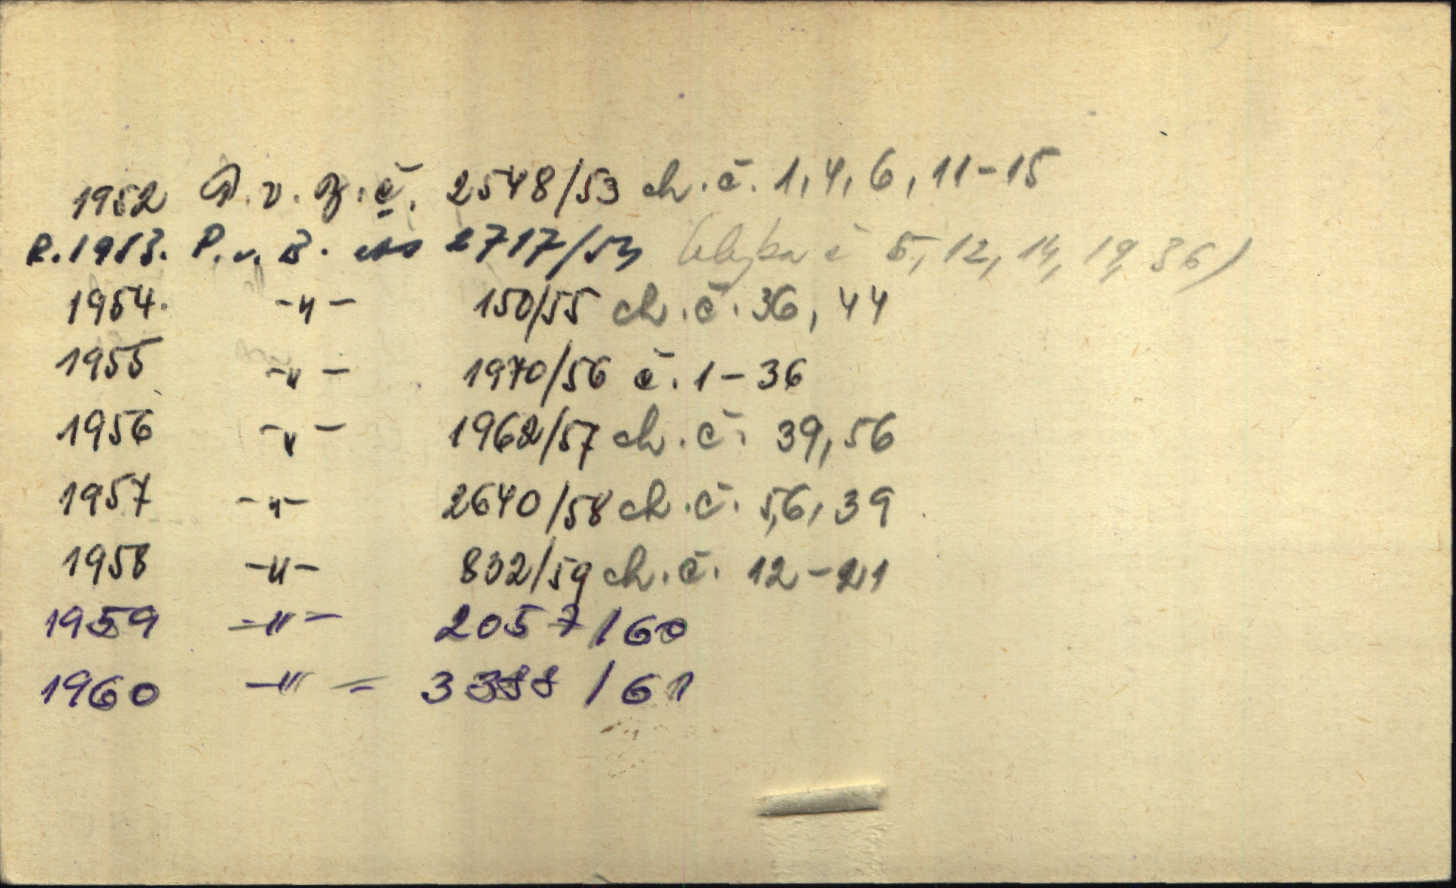 1952 P. v. z. č. 2548/53 ch. č. 1, 4, 6, 11-15
R. 1953. P. v. B. 2717/54 č 5, 12, 14, 19, 36)
1954. -"- 150/55 ch. č. 36, 44
1955 -"- 1970/56 č. 1-36
1956 -"- 1962/57 ch. č. 39, 56
1957 -"- 2640/58 ch. č. 5,6, 39
1958 -"- 832/59 ch. č. 12-21
1959 -"- 2057/60
1960 -"- 3388/61